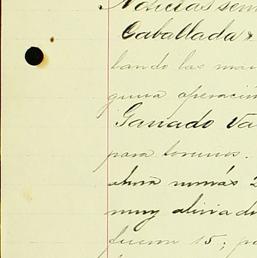 Noticias sem
Caballada &
bando las ma
guna operación
Ganado Va
para torunos.
ahora nomás 2
muy alivia du
fueron 15; p